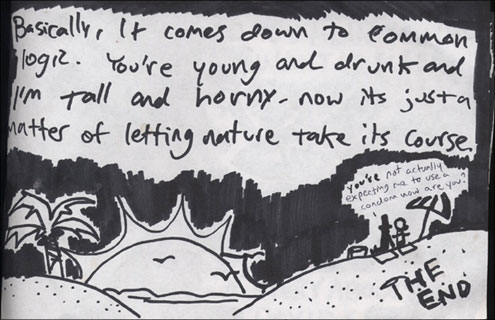 Basically, It comes down to common
logic. You're young and drunk and
I'm tall and horny. now its just a
matter of letting nature take its course.
You're not actually
expecting me to use a
condom now are you?
THE
END